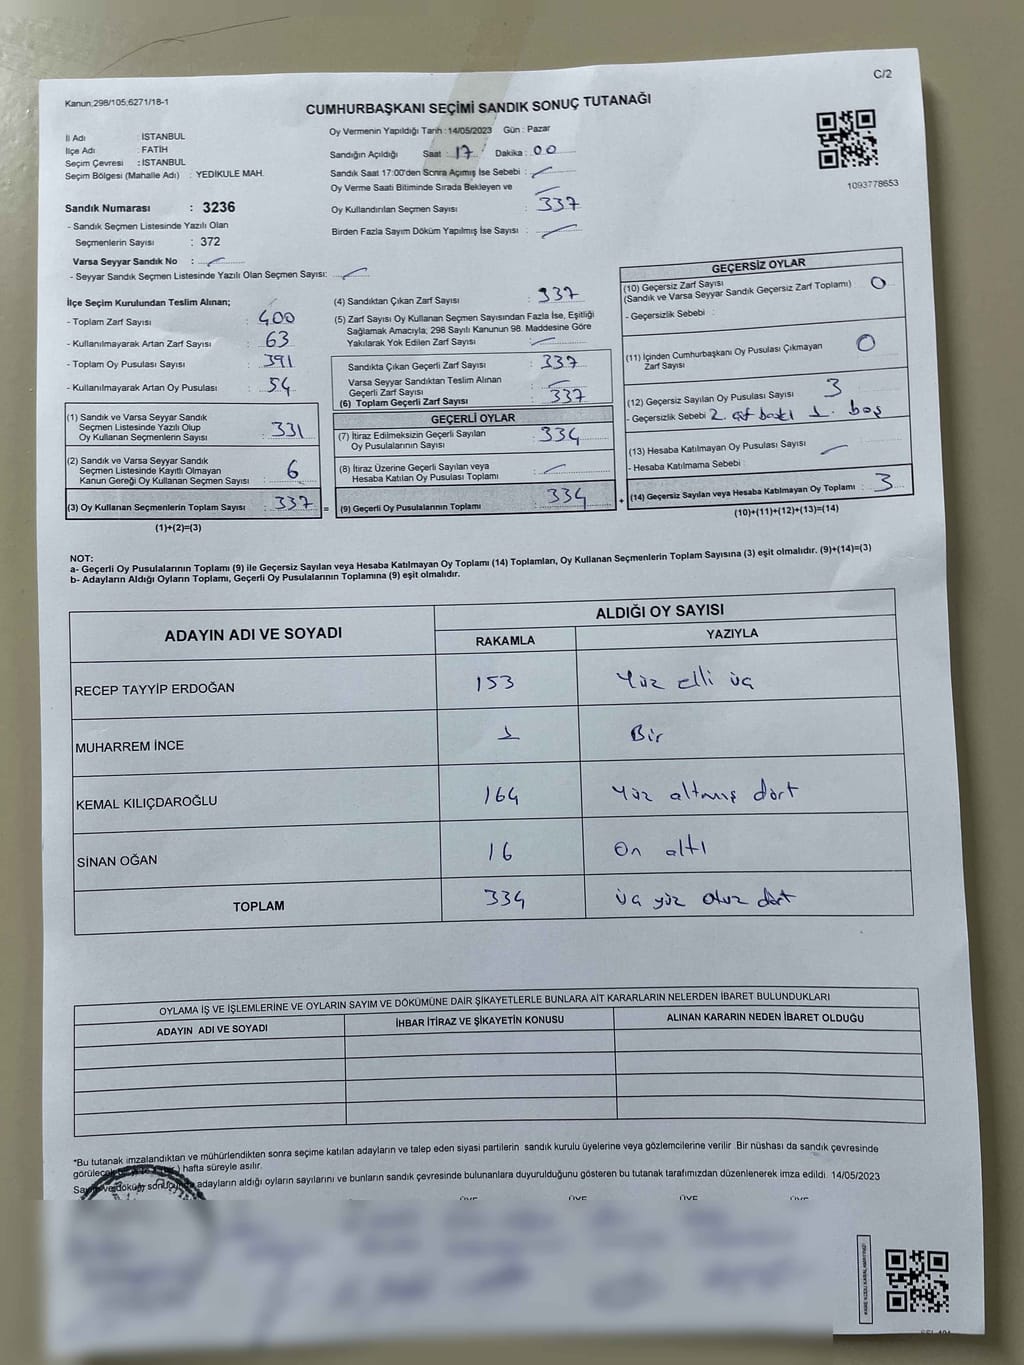 C/2
Kanun;298/105;6271/18-1
CUMHURBAŞKANI SEÇİMİ SANDIK SONUÇ TUTANAĞI
İl Adı : İSTANBUL
İlçe Adı : FATİH
Seçim Çevresi : İSTANBUL
Seçim Bölgesi (Mahalle Adı) : YEDİKULE MAH.
Oy Vermenin Yapıldığı Tarih : 14/05/2023 Gün : Pazar
Sandığın Açıldığı Saat : 17 Dakika : 00
Sandık Saat 17:00'den Sonra Açımış İse Sebebi :
Oy Verme Saati Bitiminde Sırada Bekleyen ve
Oy Kullandırılan Seçmen Sayısı : 337
Birden Fazla Sayım Döküm Yapılmış İse Sayısı :
1093778653
Sandık Numarası : 3236
- Sandık Seçmen Listesinde Yazılı Olan
Seçmenlerin Sayısı : 372
Varsa Seyyar Sandık No :
- Seyyar Sandık Seçmen Listesinde Yazılı Olan Seçmen Sayısı:
İlçe Seçim Kurulundan Teslim Alınan;
- Toplam Zarf Sayısı : 400
- Kullanılmayarak Artan Zarf Sayısı : 63
- Toplam Oy Pusulası Sayısı : 391
- Kullanılmayarak Artan Oy Pusulası : 54
(1) Sandık ve Varsa Seyyar Sandık
Seçmen Listesinde Yazılı Olup
Oy Kullanan Seçmenlerin Sayısı : 331
(2) Sandık ve Varsa Seyyar Sandık
Seçmen Listesinde Kayıtlı Olmayan
Kanun Gereği Oy Kullanan Seçmen Sayısı : 6
(3) Oy Kullanan Seçmenlerin Toplam Sayısı : 337 =
(1)+(2)=(3)
(4) Sandıktan Çıkan Zarf Sayısı : 337
(5) Zarf Sayısı Oy Kullanan Seçmen Sayısından Fazla İse, Eşitliği
Sağlamak Amacıyla; 298 Sayılı Kanunun 98. Maddesine Göre
Yakılarak Yok Edilen Zarf Sayısı :
Sandıkta Çıkan Geçerli Zarf Sayısı : 337
Varsa Seyyar Sandıktan Teslim Alınan
Geçerli Zarf Sayısı :
(6) Toplam Geçerli Zarf Sayısı : 337
GEÇERLİ OYLAR
(7) İtiraz Edilmeksizin Geçerli Sayılan
Oy Pusulalarının Sayısı : 334
(8) İtiraz Üzerine Geçerli Sayılan veya
Hesaba Katılan Oy Pusulası Toplamı :
(9) Geçerli Oy Pusulalarının Toplamı : 334 +
GEÇERSİZ OYLAR
(10) Geçersiz Zarf Sayısı
(Sandık ve Varsa Seyyar Sandık Geçersiz Zarf Toplamı) : 0
- Geçersizlik Sebebi :
(11) İçinden Cumhurbaşkanı Oy Pusulası Çıkmayan
Zarf Sayısı : 0
(12) Geçersiz Sayılan Oy Pusulası Sayısı : 3
- Geçersizlik Sebebi : 2. çift baskı 1. boş
(13) Hesaba Katılmayan Oy Pusulası Sayısı
- Hesaba Katılmama Sebebi :
(14) Geçersiz Sayılan veya Hesaba Katılmayan Oy Toplamı : 3
(10)+(11)+(12)+(13)=(14)
NOT:
a- Geçerli Oy Pusulalarının Toplamı (9) ile Geçersiz Sayılan veya Hesaba Katılmayan Oy Toplamı (14) Toplamları, Oy Kullanan Seçmenlerin Toplam Sayısına (3) eşit olmalıdır. (9)+(14)=(3)
b- Adayların Aldığı Oyların Toplamı, Geçerli Oy Pusulalarının Toplamına (9) eşit olmalıdır.
ADAYIN ADI VE SOYADI
ALDIĞI OY SAYISI
RAKAMLA YAZIYLA
RECEP TAYYİP ERDOĞAN 153 Yüz elli üç
MUHARREM İNCE 1 Bir
KEMAL KILIÇDAROĞLU 164 Yüz altmış dört
SİNAN OĞAN 16 On altı
TOPLAM 334 üç yüz otuz dört
OYLAMA İŞ VE İŞLEMLERİNE VE OYLARIN SAYIM VE DÖKÜMÜNE DAİR ŞİKAYETLERLE BUNLARA AİT KARARLARIN NELERDEN İBARET BULUNDUKLARI
ADAYIN ADI VE SOYADI İHBAR İTİRAZ VE ŞİKAYETİN KONUSU ALINAN KARARIN NEDEN İBARET OLDUĞU
*Bu tutanak imzalandıktan ve mühürlendikten sonra seçime katılan adayların ve talep eden siyasi partilerin sandık kurulu üyelerine veya gözlemcilerine verilir Bir nüshası da sandık çevresinde
hafta süreyle asılır.
adayların aldığı oyların sayılarını ve bunların sandık çevresinde bulunanlara duyurulduğunu gösteren bu tutanak tarafımızdan düzenlenerek imza edildi. 14/05/2023
ÜYE ÜYE ÜYE ÜYE